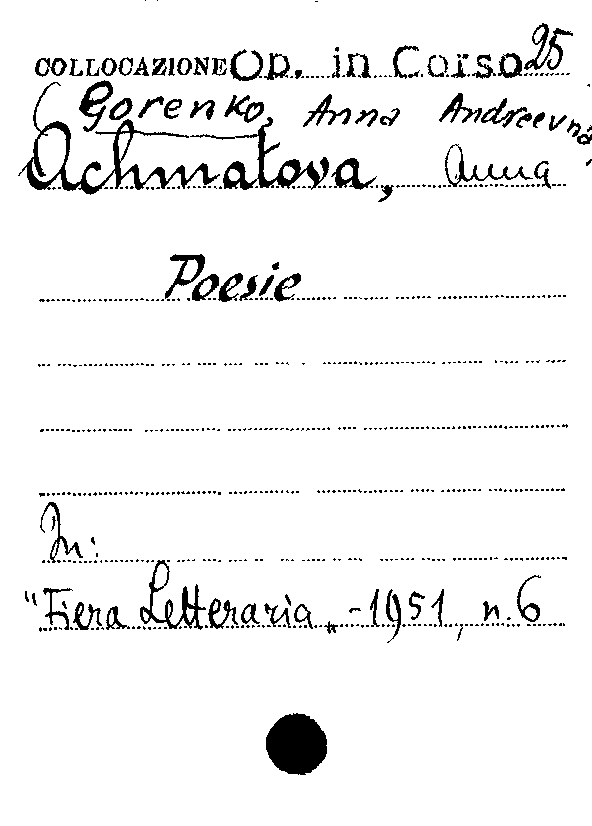 COLLOCAZIONE Op. in Corso 25
(Gorenko, Anna Andreevna,
Achmatova, Anna
Poesie
In:
"Fiera Letteraria„ - 1951, n. 6